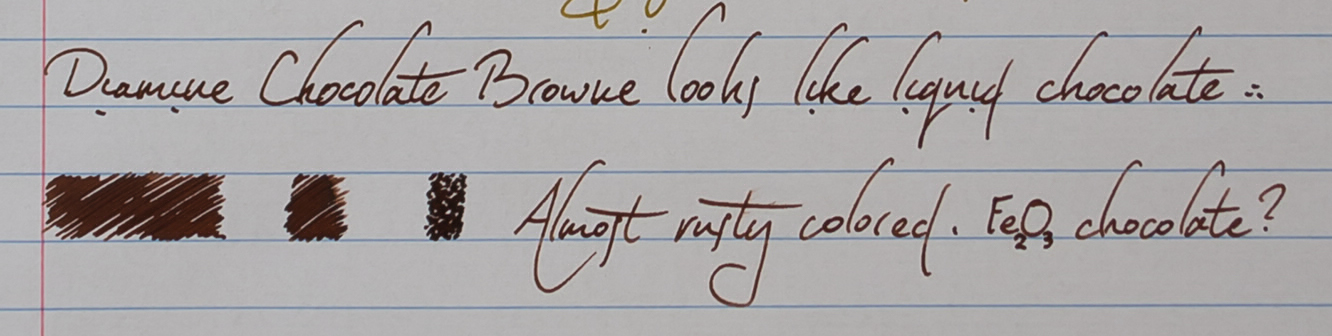 Diamine Chocolate Browne looks like liquid chocolate ∴
Almost rusty colored. Fe₂O₃ chocolate?